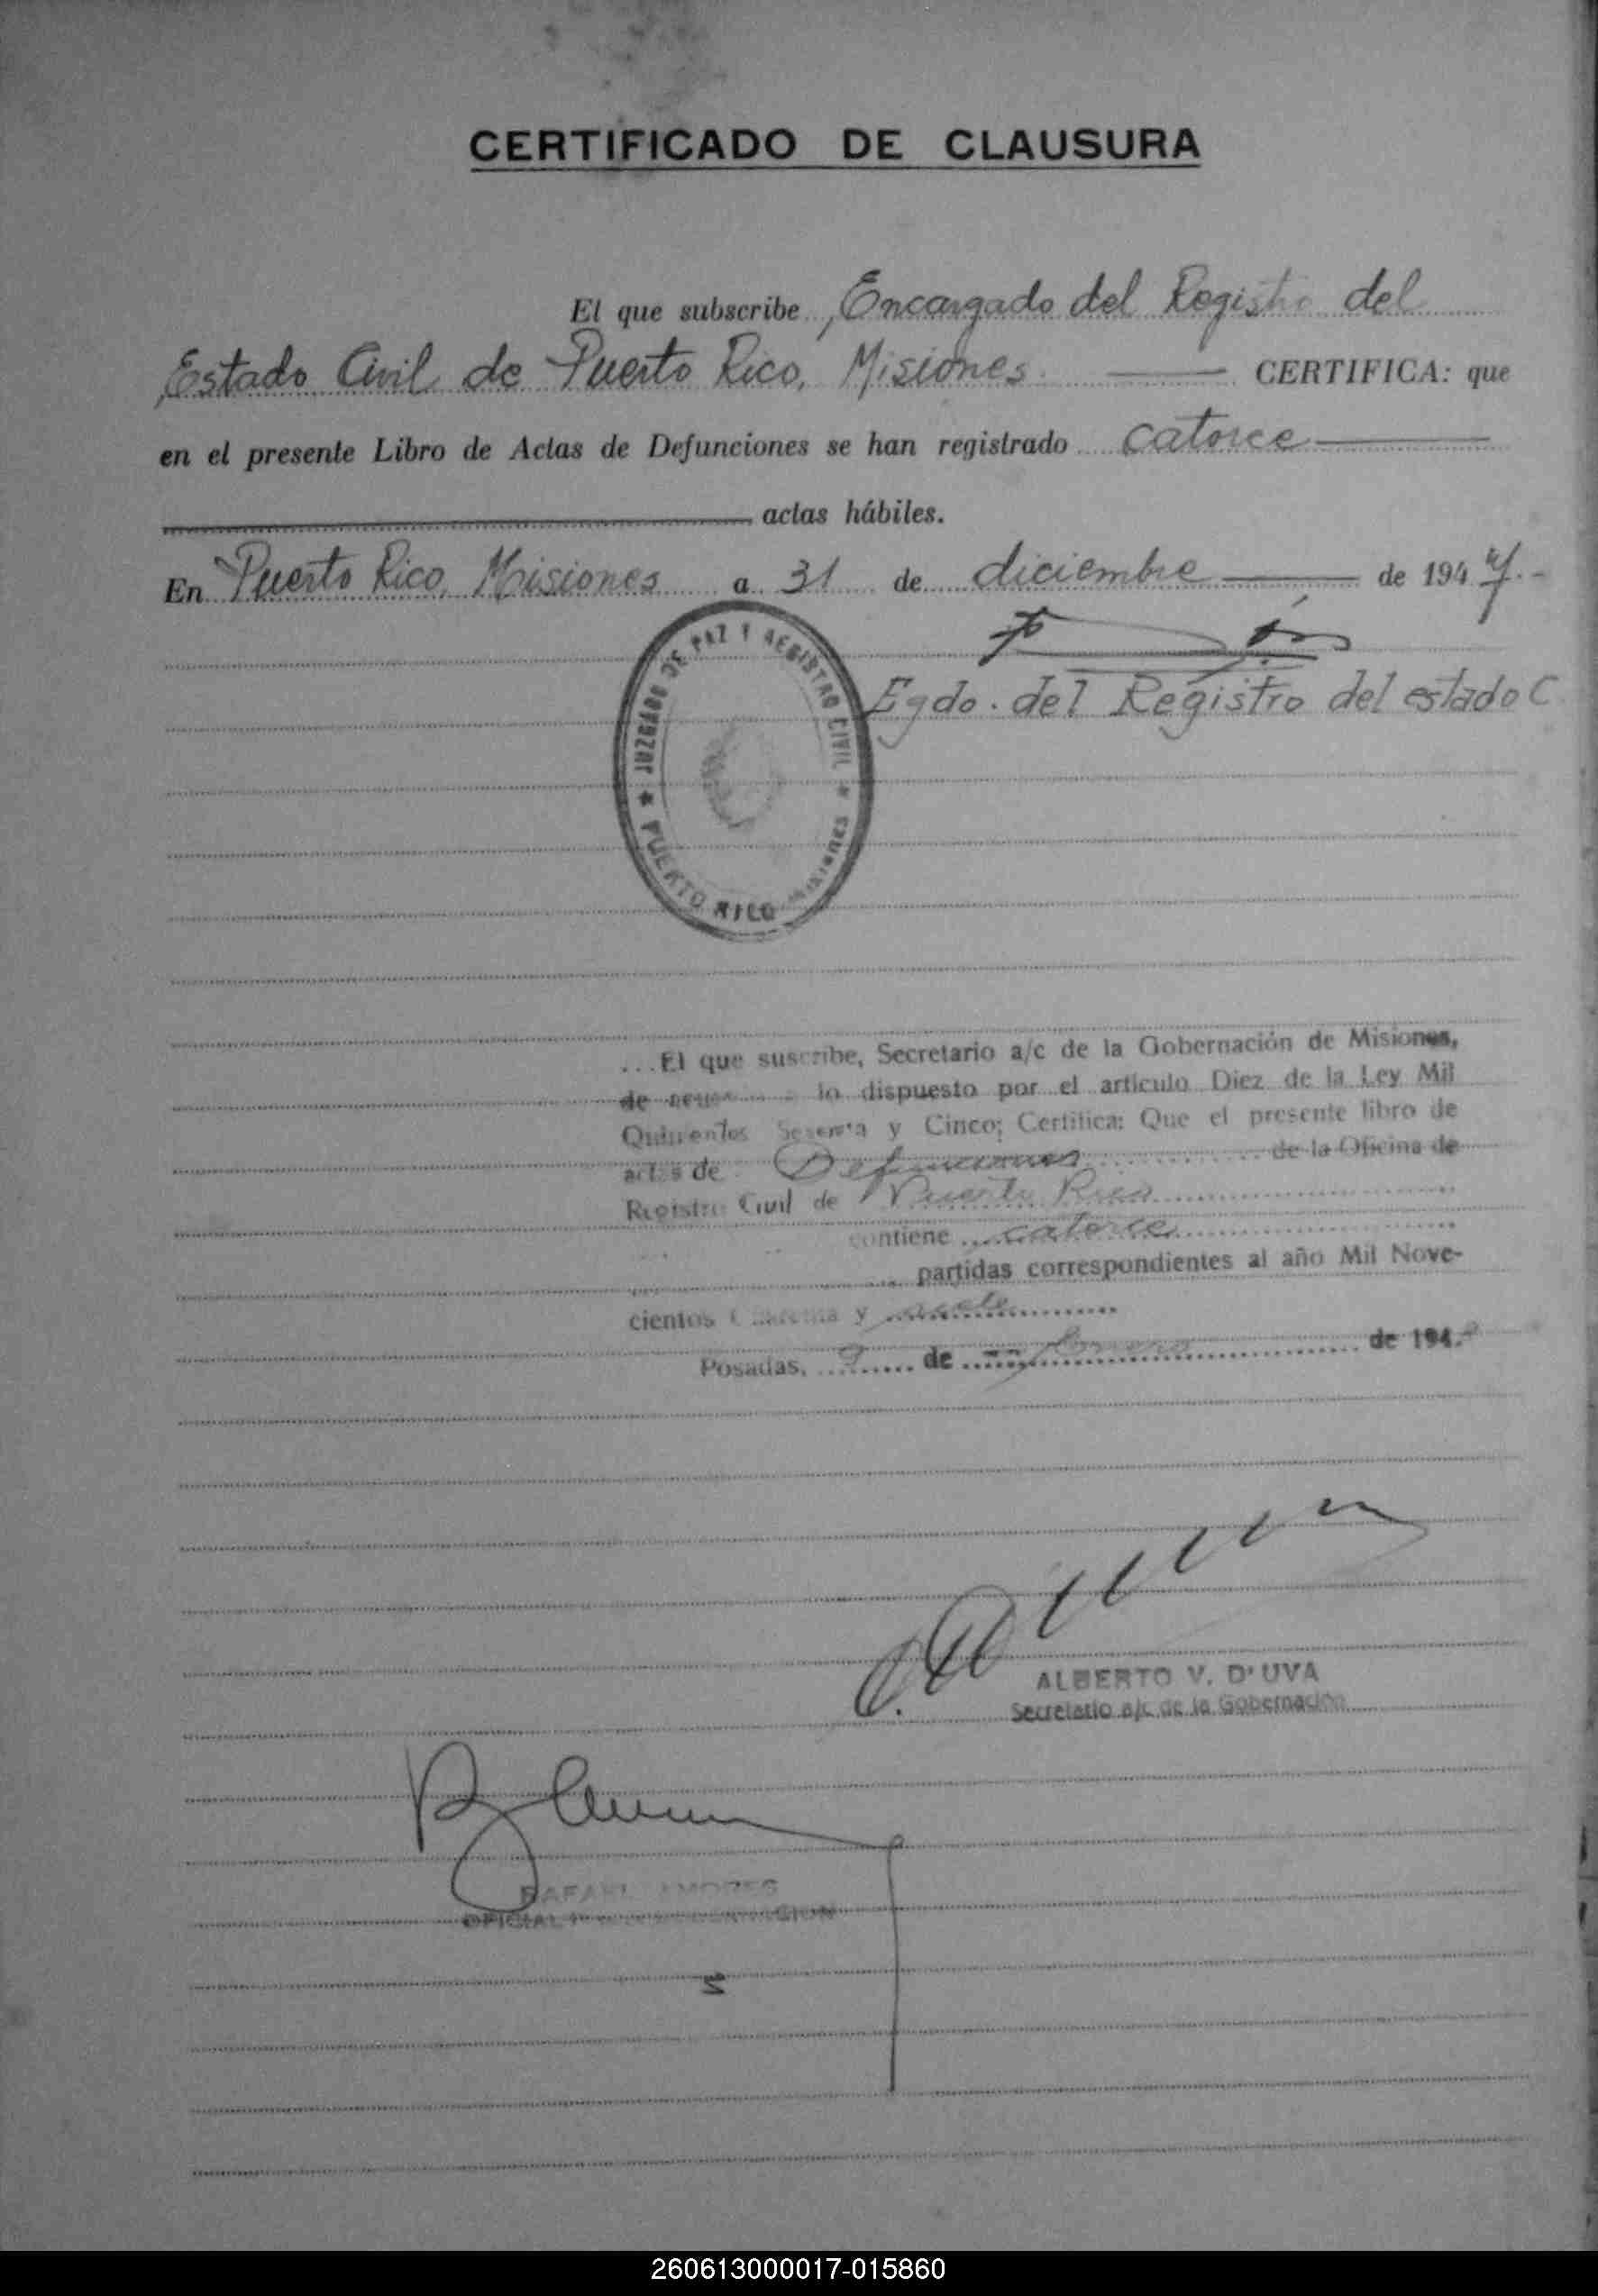 CERTIFICADO DE CLAUSURA
El que subscribe, Encargado del Registro del
Estado Civil de Puerto Rico, Misiones. CERTIFICA: que
en el presente Libro de Actas de Defunciones se han registrado catorce
actas hábiles.
En Puerto Rico, Misiones a 31 de diciembre de 1947.-
Egdo. del Registro del estado C.
JUZGADO DE PAZ Y REGISTRO CIVIL
★ PUERTO RICO MISIONES ★
...El que suscribe, Secretario a/c de la Gobernación de Misiones,
de lo dispuesto por el artículo Diez de la Ley Mil
Quinientos Sesenta y Cinco; Certifica: Que el presente libro de
actas de Defunciones de la Oficina de
Registro Civil de Puerto Rico
contiene catorce
partidas correspondientes al año Mil Nove-
cientos Cuarenta y siete
Posadas, 9 de de 194
ALBERTO V. D'UVA
Secretario a/c de la Gobernación
RAFAEL AMORES
OFICIAL
260613000017-015860